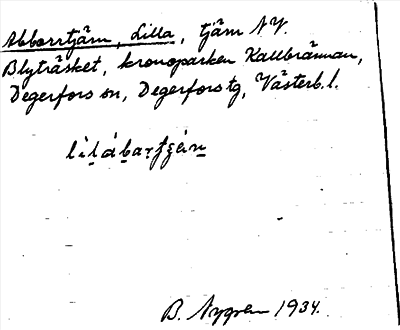 Abborrtjärn, Lilla, tjärn NV.
Blyträsket, kronoparken Kallbrännan,
Degerfors sn, Degerfors tg, Västerb. l.
B. Nygren 1934.